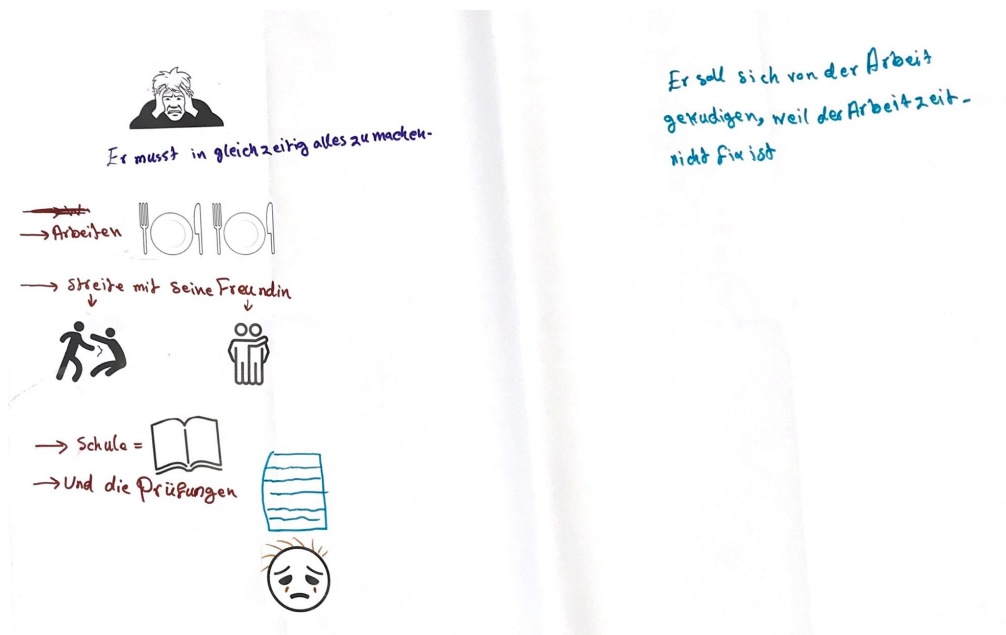 Er musst in gleichzeitig alles zu machen.
→ Arbeiten
→ streite mit seine Freundin
→ Schule =
→ Und die Prüfungen
Er soll sich von der Arbeit
gekudigen, weil der Arbeitzeit
nicht fix ist